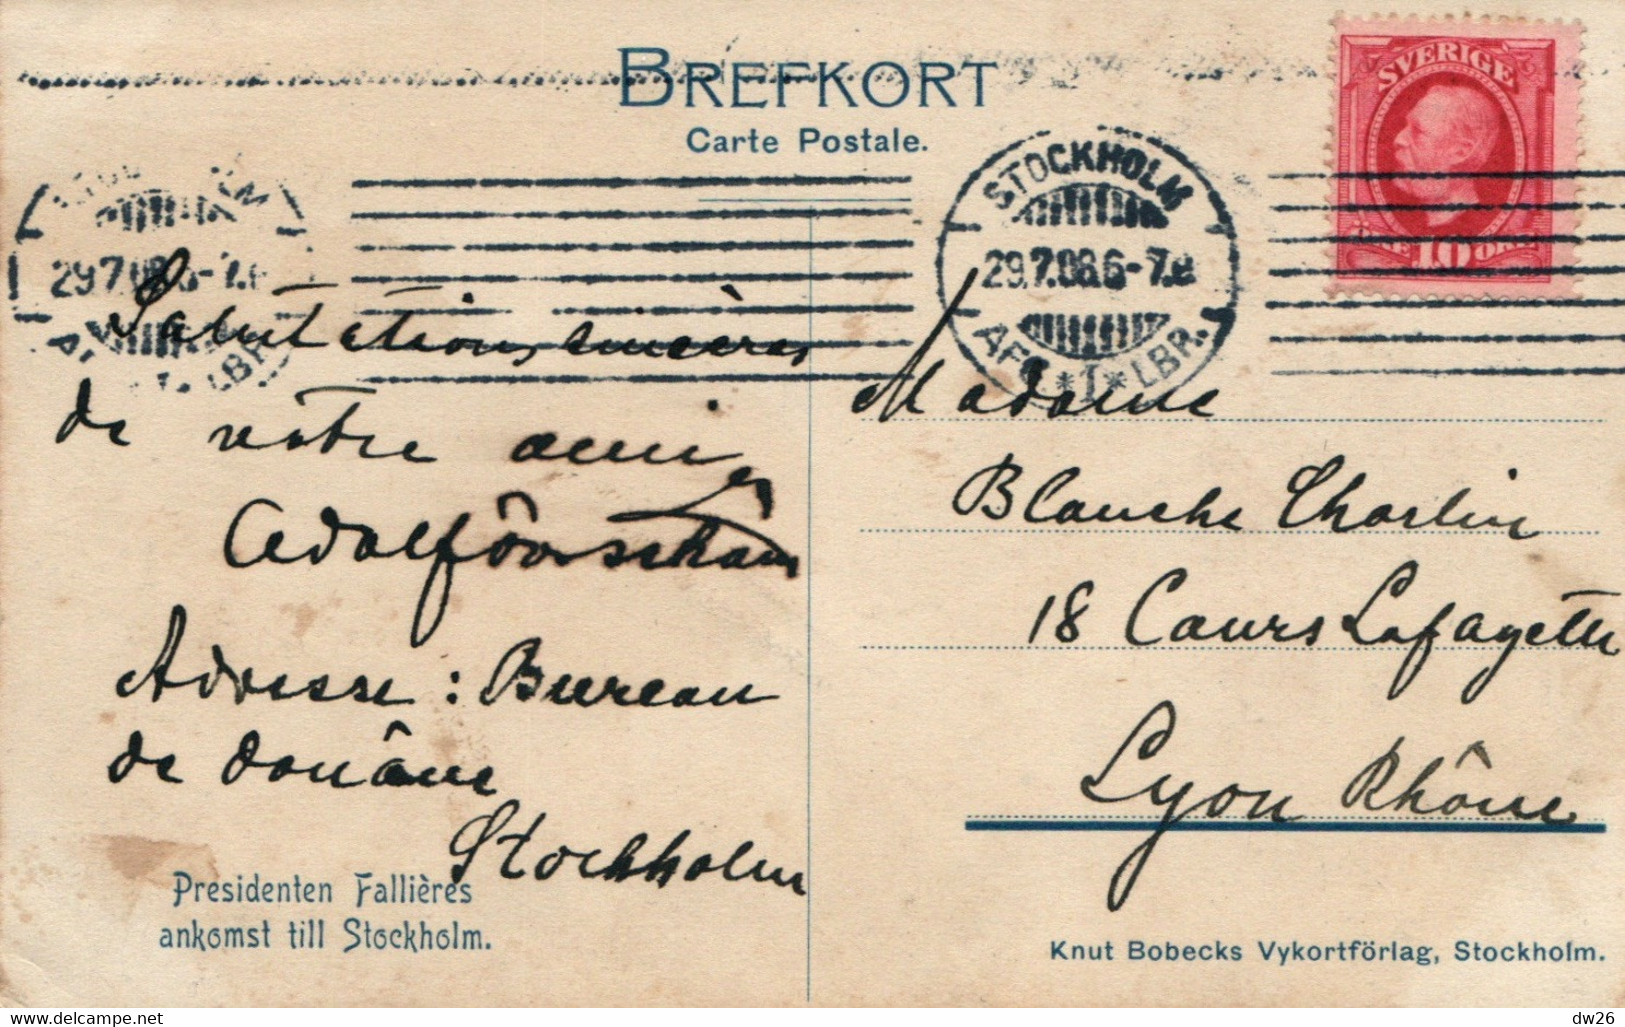 BREFKORT
Carte Postale.
SVERIGE
ÖRE 10 ÖRE
STOCKHOLM
29.7.08.6-7.
1 LBR.
29.7.08.6-7.
LBR.
Salutations sincères
de votre ami
Adolf
Adresse : Bureau
de douâne
Stockholm
Madame
Blanche Charlin
18 Cours Lafayette
Lyon Rhône
Presidenten Fallières
ankomst till Stockholm.
Knut Bobecks Vykortförlag, Stockholm.
delcampe.net
dw26